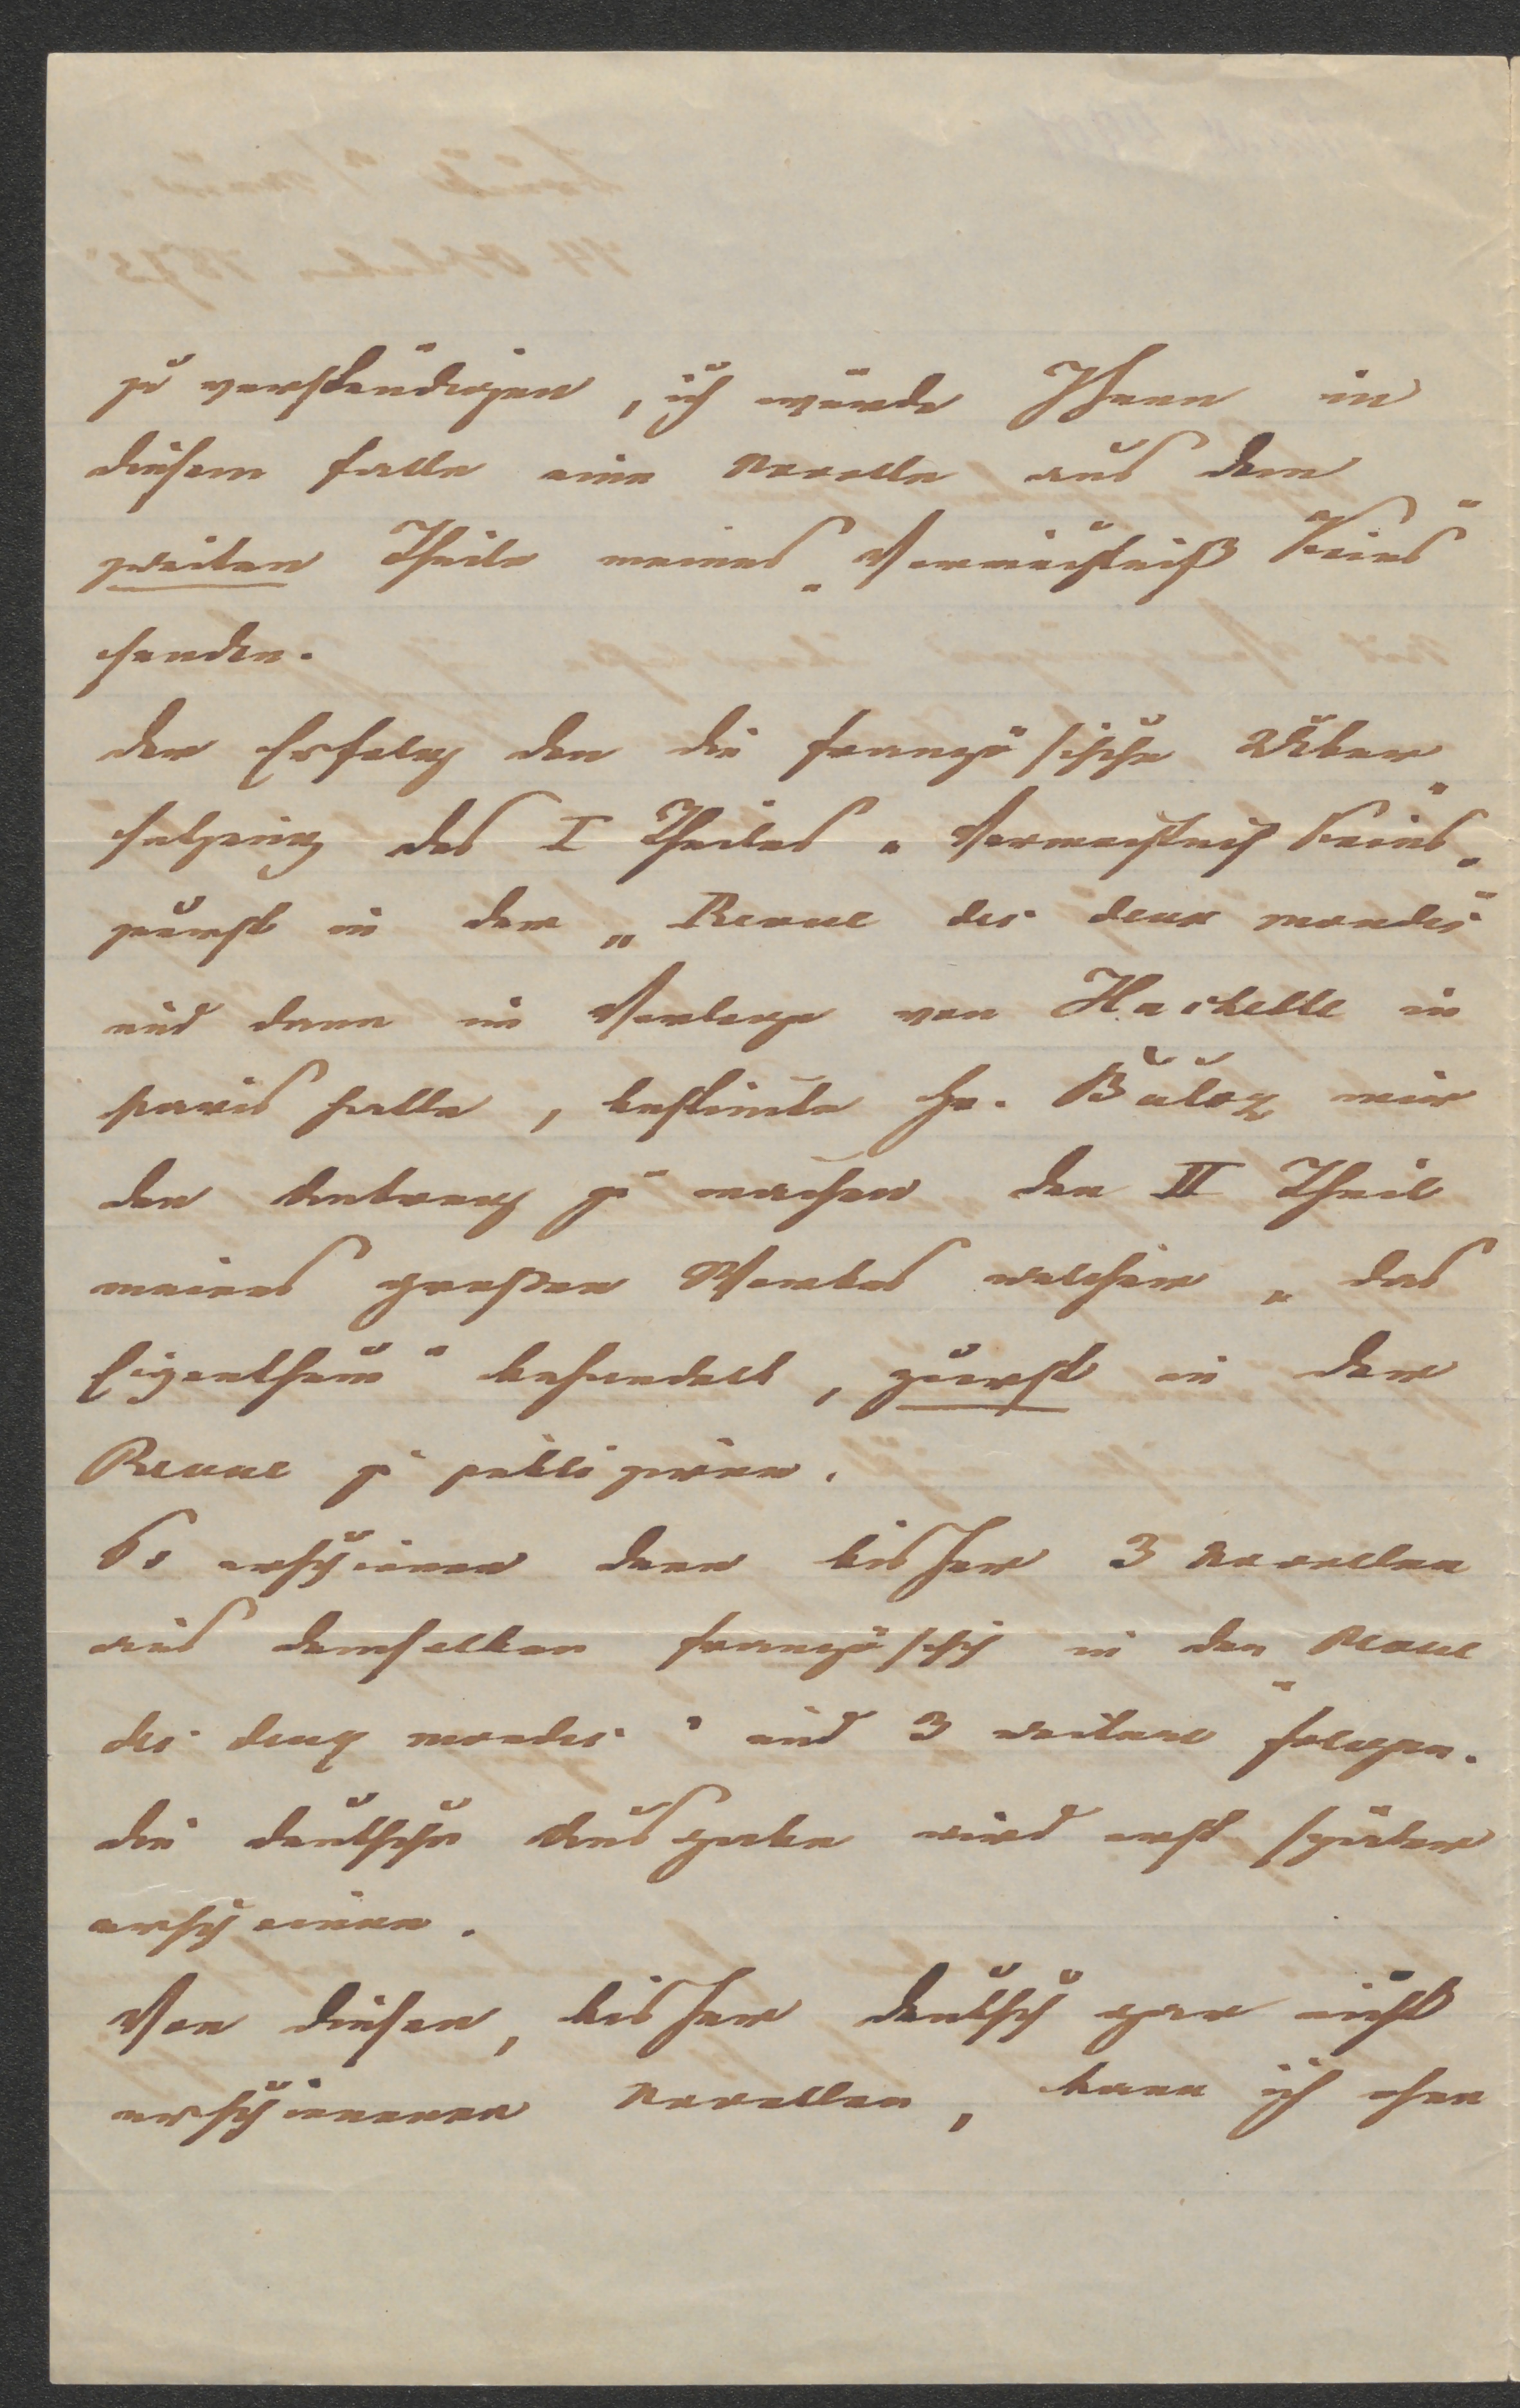 zu verständigen, ich würde Ihnen in
diesem Falle eine Novelle aus dem
zweiten Theile meines „Vermächtniß Kains"
senden.
Der Erfolg den die französische Über„
setzung des I Theiles „Vermächtniß Kains„
zuerst in der „Revue des deux mondes"
und dann im Verlage von Hachette in
Paris hatte, bestimmte Hr. Buloz mir
den Antrag zu machen den II Theil
meines großen Werkes welcher „das
Eigenthum" behandelt, zuerst in der
Revue zu publiziren.
So erschienen denn bisher 3 Novellen
aus demselben französisch in der „Revue
des deux mondes" und 3 weitere folgen.
Die deutsche Ausgabe wird erst später
erscheinen.
Von diesen, bisher deutsch gar nicht
erschienenen Novellen, kann ich eben